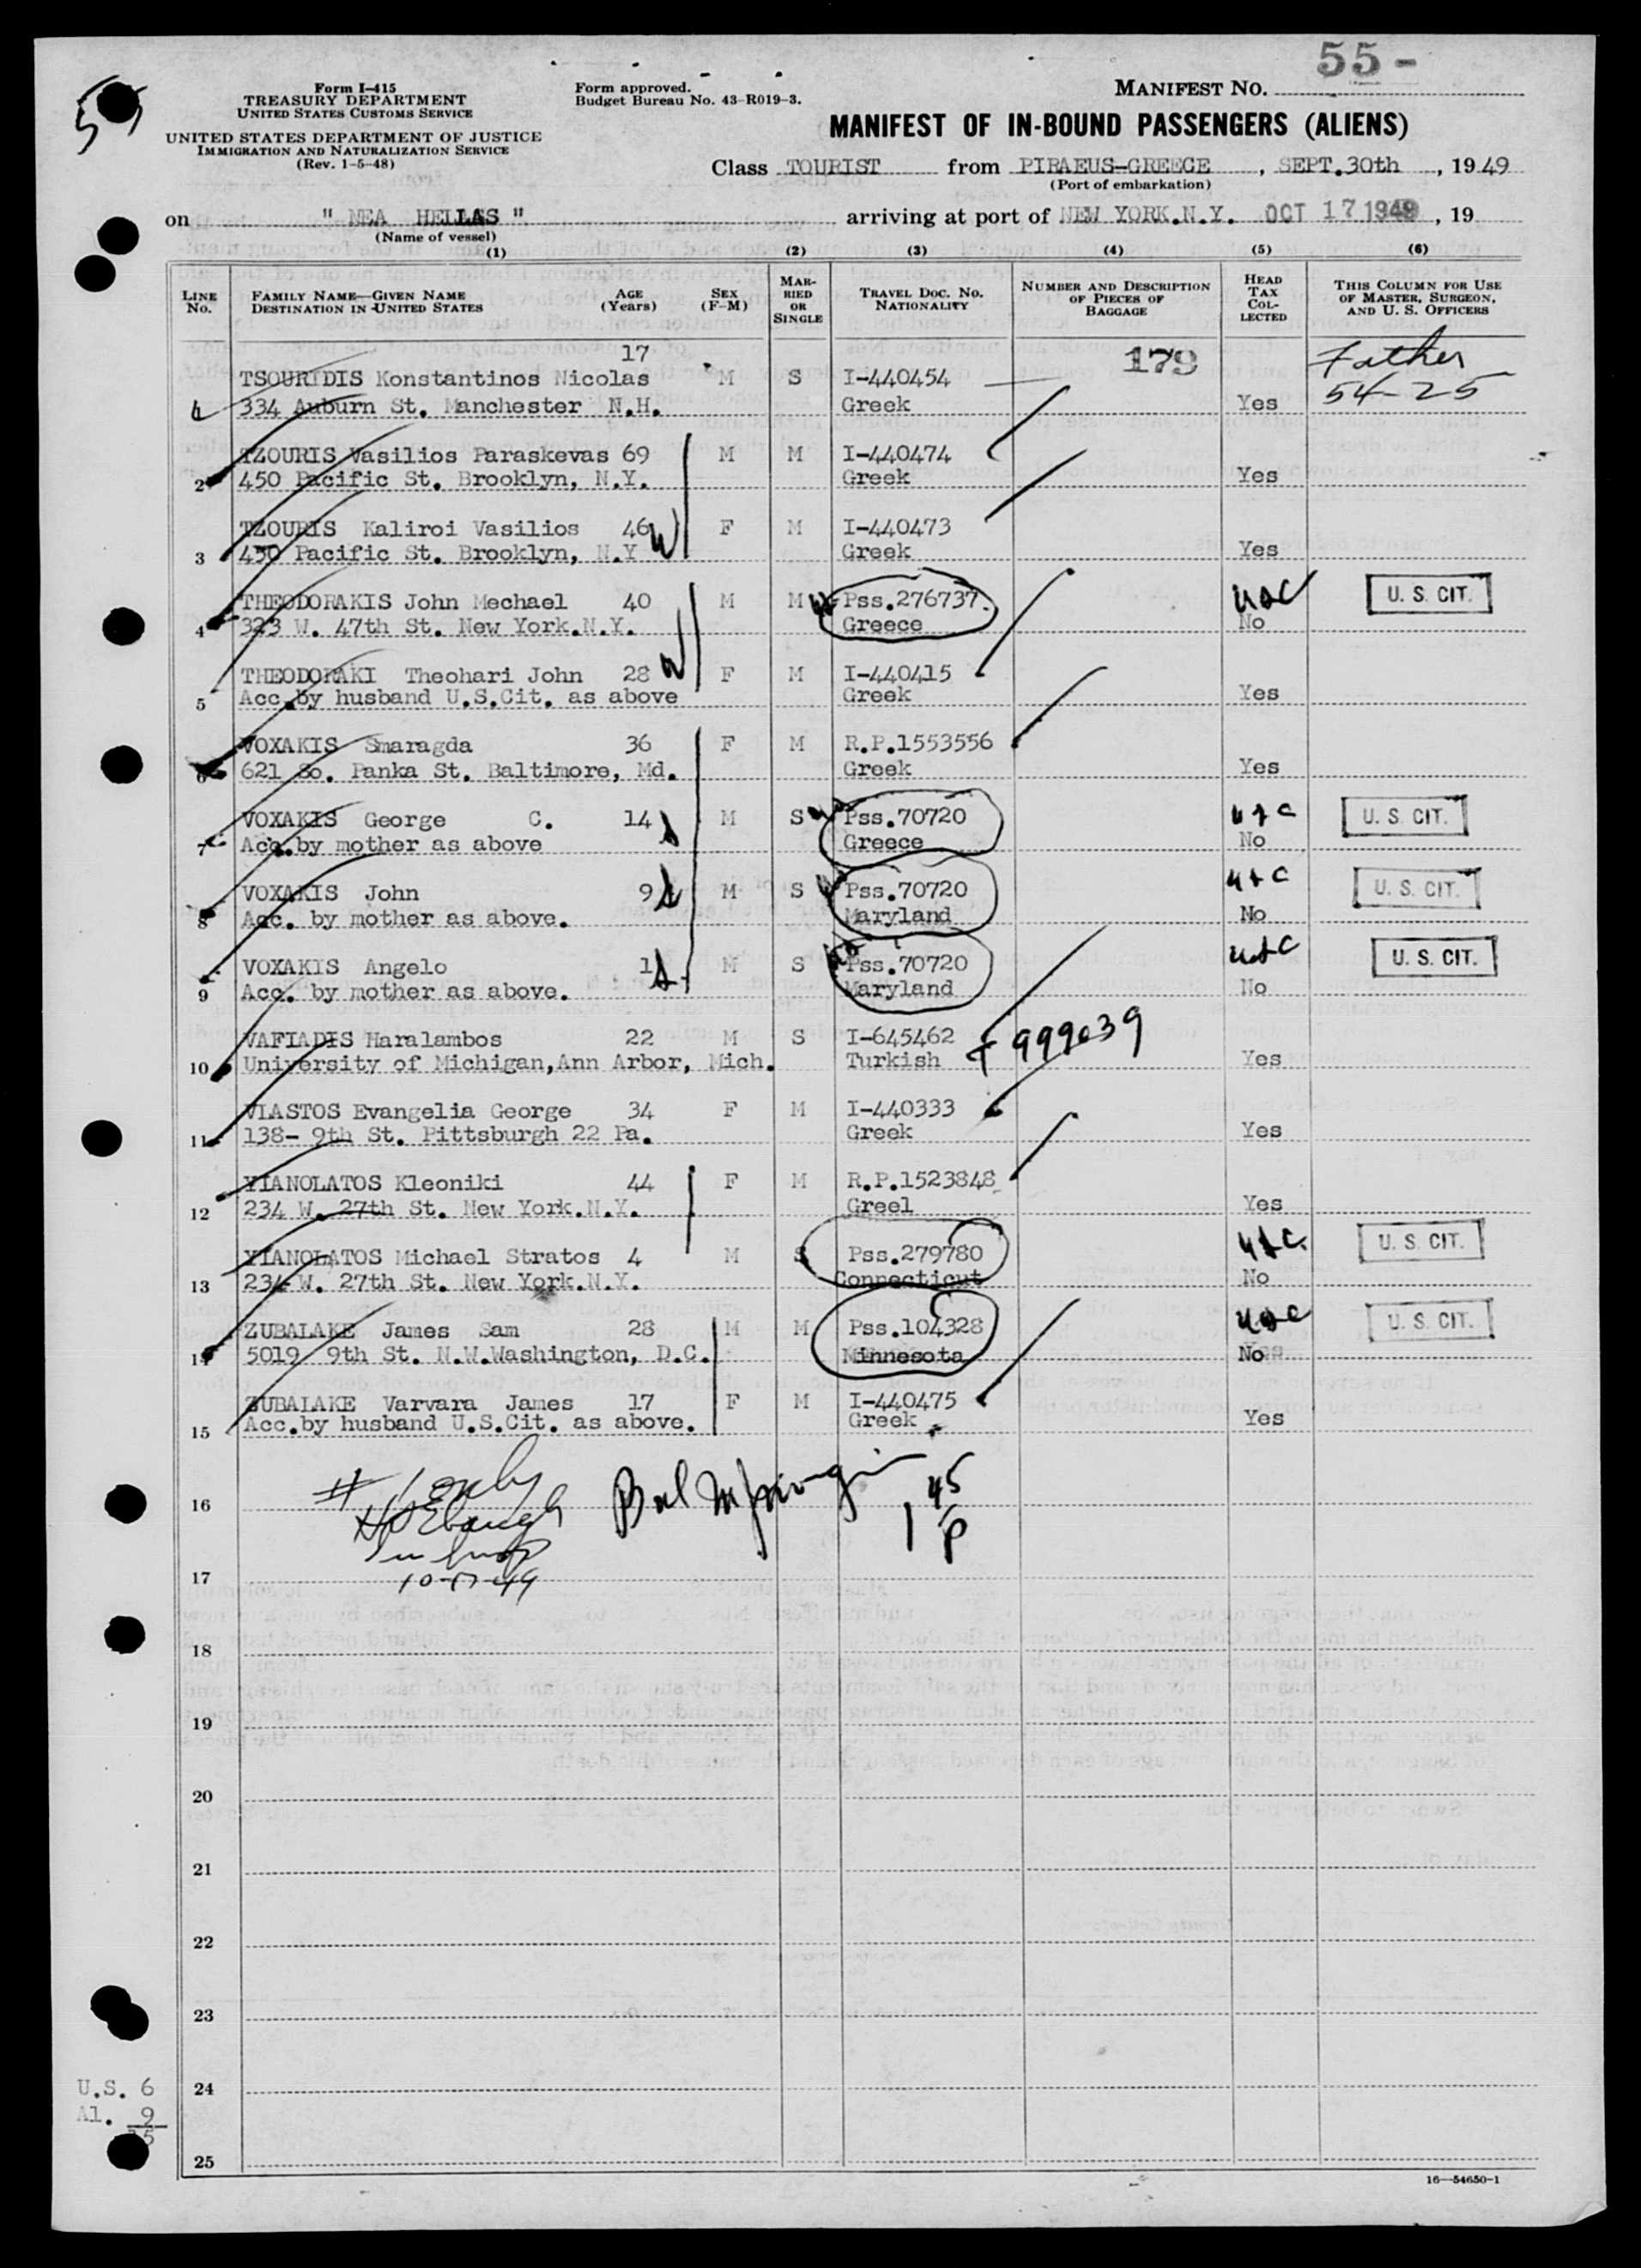 55-
55
Form I-415
TREASURY DEPARTMENT
UNITED STATES CUSTOMS SERVICE
UNITED STATES DEPARTMENT OF JUSTICE
IMMIGRATION AND NATURALIZATION SERVICE
(Rev. 1-5-48)
Form approved.
Budget Bureau No. 43-R019-3.
MANIFEST NO.
MANIFEST OF IN-BOUND PASSENGERS (ALIENS)
Class TOURIST from PIRAEUS-GREECE, SEPT.30th, 1949
(Port of embarkation)
on " NEA HELLAS " arriving at port of NEW YORK.N.Y. OCT 17 1949, 19
(Name of vessel)
(1) (2) (3) (4) (5) (6)
LINE No. FAMILY NAME—GIVEN NAME DESTINATION IN UNITED STATES AGE (Years) SEX (F-M) MARRIED OR SINGLE TRAVEL DOC. NO. NATIONALITY NUMBER AND DESCRIPTION OF PIECES OF BAGGAGE HEAD TAX COLLECTED THIS COLUMN FOR USE OF MASTER, SURGEON, AND U. S. OFFICERS
17 179 Father
TSOURIDIS Konstantinos Nicolas M S I-440454 54-25
334 Auburn St. Manchester N.H. Greek Yes
TZOURIS Vasilios Paraskevas 69 M M I-440474
2 450 Pacific St. Brooklyn, N.Y. Greek Yes
TZOURIS Kaliroi Vasilios 46 F M I-440473
3 450 Pacific St. Brooklyn, N.Y Greek Yes
THEODORAKIS John Mechael 40 M M Pss.276737. U. S. CIT.
4 323 W. 47th St. New York.N.Y. Greece No
THEODORAKI Theohari John 28 F M I-440415
5 Acc.by husband U.S.Cit. as above Greek Yes
VOXAKIS Smaragda 36 F M R.P.1553556
6 621 So. Panka St. Baltimore, Md. Greek Yes
VOXAKIS George C. 14 M S Pss.70720 U. S. CIT.
7 Acc.by mother as above Greece No
VOXAKIS John 9 M S Pss.70720 U. S. CIT.
8 Acc. by mother as above. Maryland No
VOXAKIS Angelo 1 M S Pss.70720 U. S. CIT.
9 Acc. by mother as above. Maryland No
VAFIADIS Haralambos 22 M S I-645462 999039
10 University of Michigan,Ann Arbor, Mich. Turkish Yes
VIASTOS Evangelia George 34 F M I-440333
11 138- 9th St. Pittsburgh 22 Pa. Greek Yes
YIANOLATOS Kleoniki 44 F M R.P.1523848
12 234 W. 27th St. New York.N.Y. Greel Yes
YIANOLATOS Michael Stratos 4 M S Pss.279780 U. S. CIT.
13 234 W. 27th St. New York.N.Y. Connecticut No
ZUBALAKE James Sam 28 M M Pss.104328 U. S. CIT.
14 5019 9th St. N.W.Washington, D.C. Minnesota No
ZUBALAKE Varvara James 17 F M I-440475
15 Acc.by husband U.S.Cit. as above. Greek Yes
# 1 only
16
145 P
17 10-17-49
18
19
20
21
22
23
24
25
U.S. 6
Al. 9
15
16—54650-1